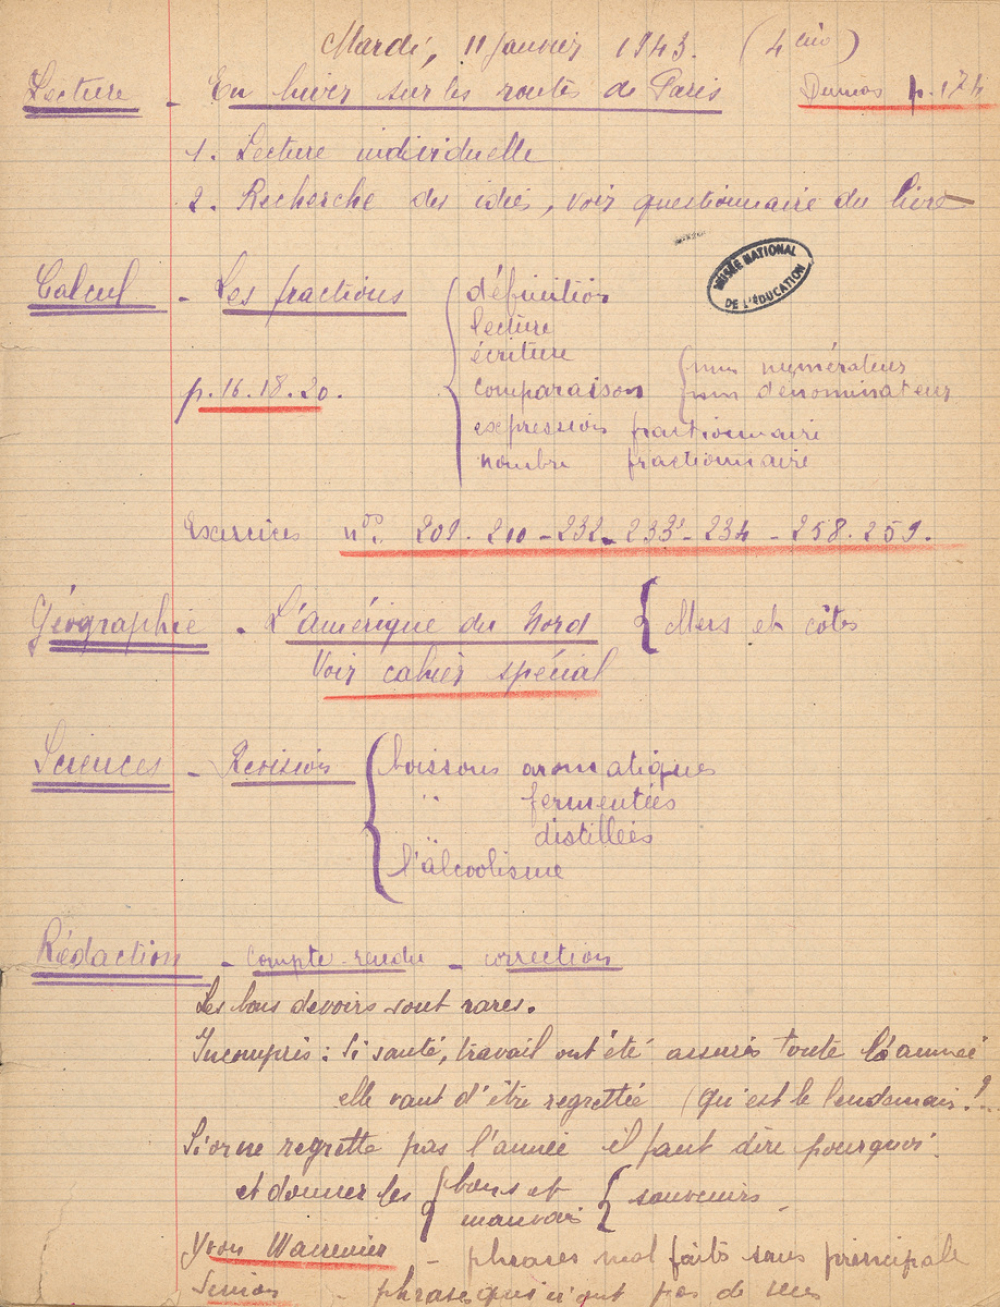 Mardi, 11 Janvier 1943.
Lecture - En hiver sur les routes de Paris Dumas p. 174
1. Lecture individuelle
2. Recherche des idées, voir questionnaire du livre
MUSÉE NATIONAL DE L'ÉDUCATION
Calcul - Les fractions { définition
lecture
écriture
p. 16. 18. 20. comparaison { numérateurs
dénominateurs
expression fractionnaire
nombre fractionnaire
Exercices nos 209. 210 - 232 - 233 - 234 - 258. 259.
Géographie - L'Amérique du Nord { Mers et côtes
Voir cahier spécial
Sciences - Revision { boissons aromatiques
" fermentées
" distillées
l'alcoolisme
Rédaction - compte-rendu - correction
Les bons devoirs sont rares.
Incompris : Si santé, travail ont été assurés toute l'année
elle vaut d'être regrettée (Qu'est le lendemain !?..
Si on ne regrette pas l'année il faut dire pourquoi
et donner les { bons et
mauvais { souvenirs
Yvon - phrases mal faites sans principale
- phrases qui n'ont pas de sens